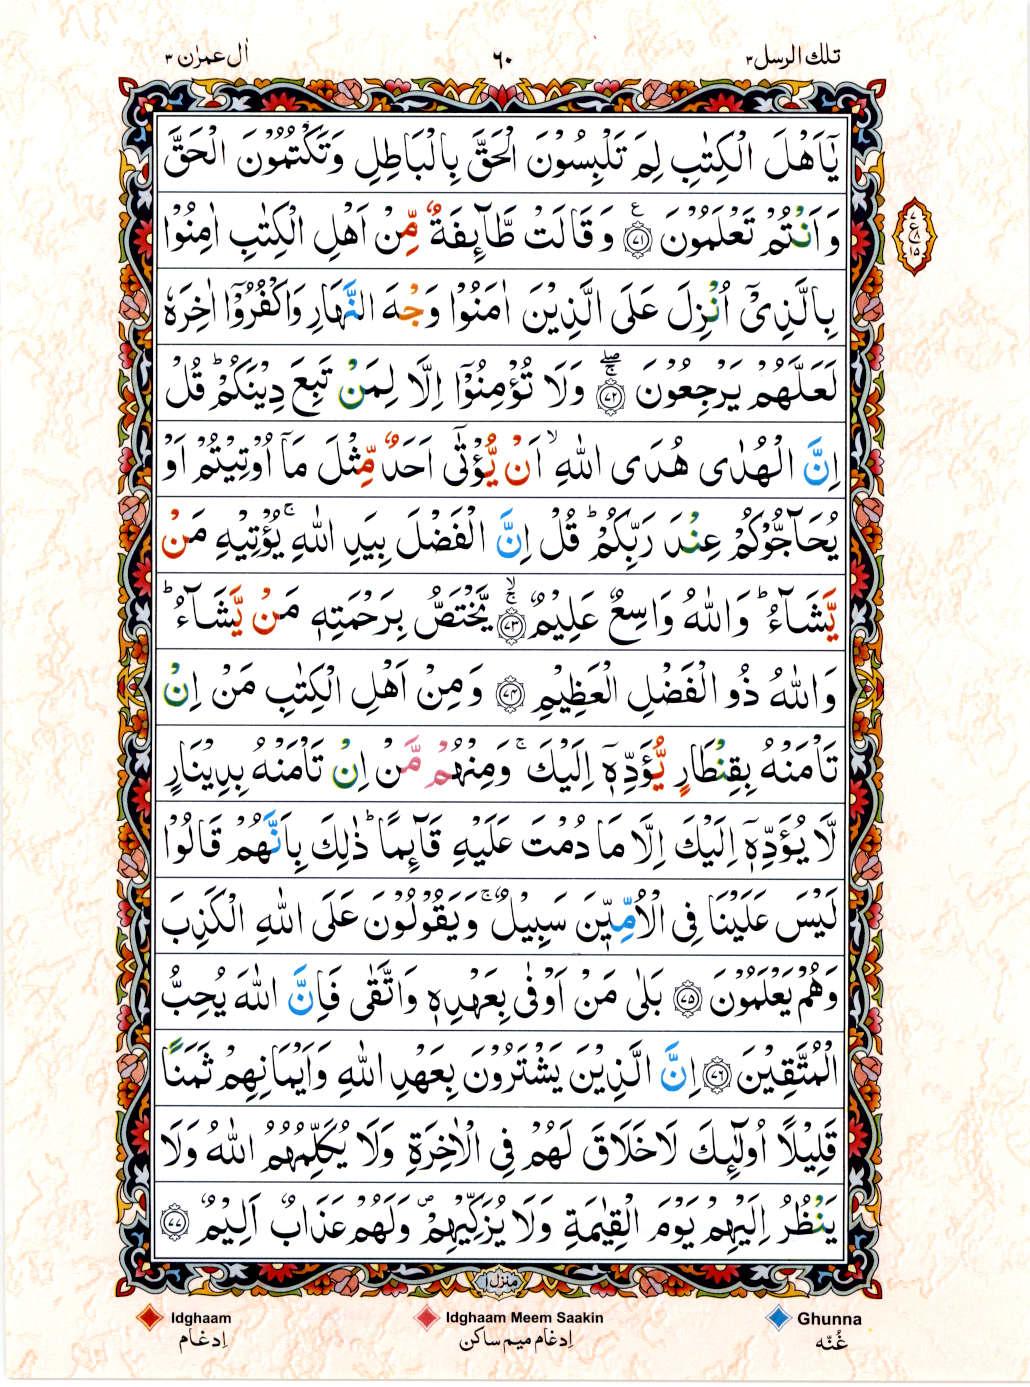 اٰل عمرٰن ٣
٦٠
تلك الرسل ٣
يٰٓاَهْلَ الْكِتٰبِ لِمَ تَلْبِسُوْنَ الْحَقَّ بِالْبَاطِلِ وَتَكْتُمُوْنَ الْحَقَّ
وَاَنْتُمْ تَعْلَمُوْنَ ۝٧١ ع وَقَالَتْ طَّآئِفَةٌ مِّنْ اَهْلِ الْكِتٰبِ اٰمِنُوْا
بِالَّذِيْٓ اُنْزِلَ عَلَى الَّذِيْنَ اٰمَنُوْا وَجْهَ النَّهَارِ وَاكْفُرُوْٓا اٰخِرَهٗ
لَعَلَّهُمْ يَرْجِعُوْنَ ۝٧٢ وَلَا تُؤْمِنُوْٓا اِلَّا لِمَنْ تَبِعَ دِيْنَكُمْ ؕ قُلْ
اِنَّ الْهُدٰى هُدَى اللّٰهِ ۙ اَنْ يُّؤْتٰٓى اَحَدٌ مِّثْلَ مَآ اُوْتِيْتُمْ اَوْ
يُحَآجُّوْكُمْ عِنْدَ رَبِّكُمْ ؕ قُلْ اِنَّ الْفَضْلَ بِيَدِ اللّٰهِ ۚ يُؤْتِيْهِ مَنْ
يَّشَآءُ ؕ وَاللّٰهُ وَاسِعٌ عَلِيْمٌ ۝٧٣ يَّخْتَصُّ بِرَحْمَتِهٖ مَنْ يَّشَآءُ ؕ
وَاللّٰهُ ذُو الْفَضْلِ الْعَظِيْمِ ۝٧٤ وَمِنْ اَهْلِ الْكِتٰبِ مَنْ اِنْ
تَاْمَنْهُ بِقِنْطَارٍ يُّؤَدِّهٖٓ اِلَيْكَ ۚ وَمِنْهُمْ مَّنْ اِنْ تَاْمَنْهُ بِدِيْنَارٍ
لَّا يُؤَدِّهٖٓ اِلَيْكَ اِلَّا مَا دُمْتَ عَلَيْهِ قَآئِمًا ؕ ذٰلِكَ بِاَنَّهُمْ قَالُوْا
لَيْسَ عَلَيْنَا فِى الْاُمِّيّٖنَ سَبِيْلٌ ۚ وَيَقُوْلُوْنَ عَلَى اللّٰهِ الْكَذِبَ
وَهُمْ يَعْلَمُوْنَ ۝٧٥ بَلٰى مَنْ اَوْفٰى بِعَهْدِهٖ وَاتَّقٰى فَاِنَّ اللّٰهَ يُحِبُّ
الْمُتَّقِيْنَ ۝٧٦ اِنَّ الَّذِيْنَ يَشْتَرُوْنَ بِعَهْدِ اللّٰهِ وَاَيْمَانِهِمْ ثَمَنًا
قَلِيْلًا اُولٰٓئِكَ لَا خَلَاقَ لَهُمْ فِى الْاٰخِرَةِ وَلَا يُكَلِّمُهُمُ اللّٰهُ وَلَا
يَنْظُرُ اِلَيْهِمْ يَوْمَ الْقِيٰمَةِ وَلَا يُزَكِّيْهِمْ ۪ وَلَهُمْ عَذَابٌ اَلِيْمٌ ۝٧٧
منزل ١
Idghaam
اِدغام
Idghaam Meem Saakin
اِدغام ميم ساكن
Ghunna
غُنّه